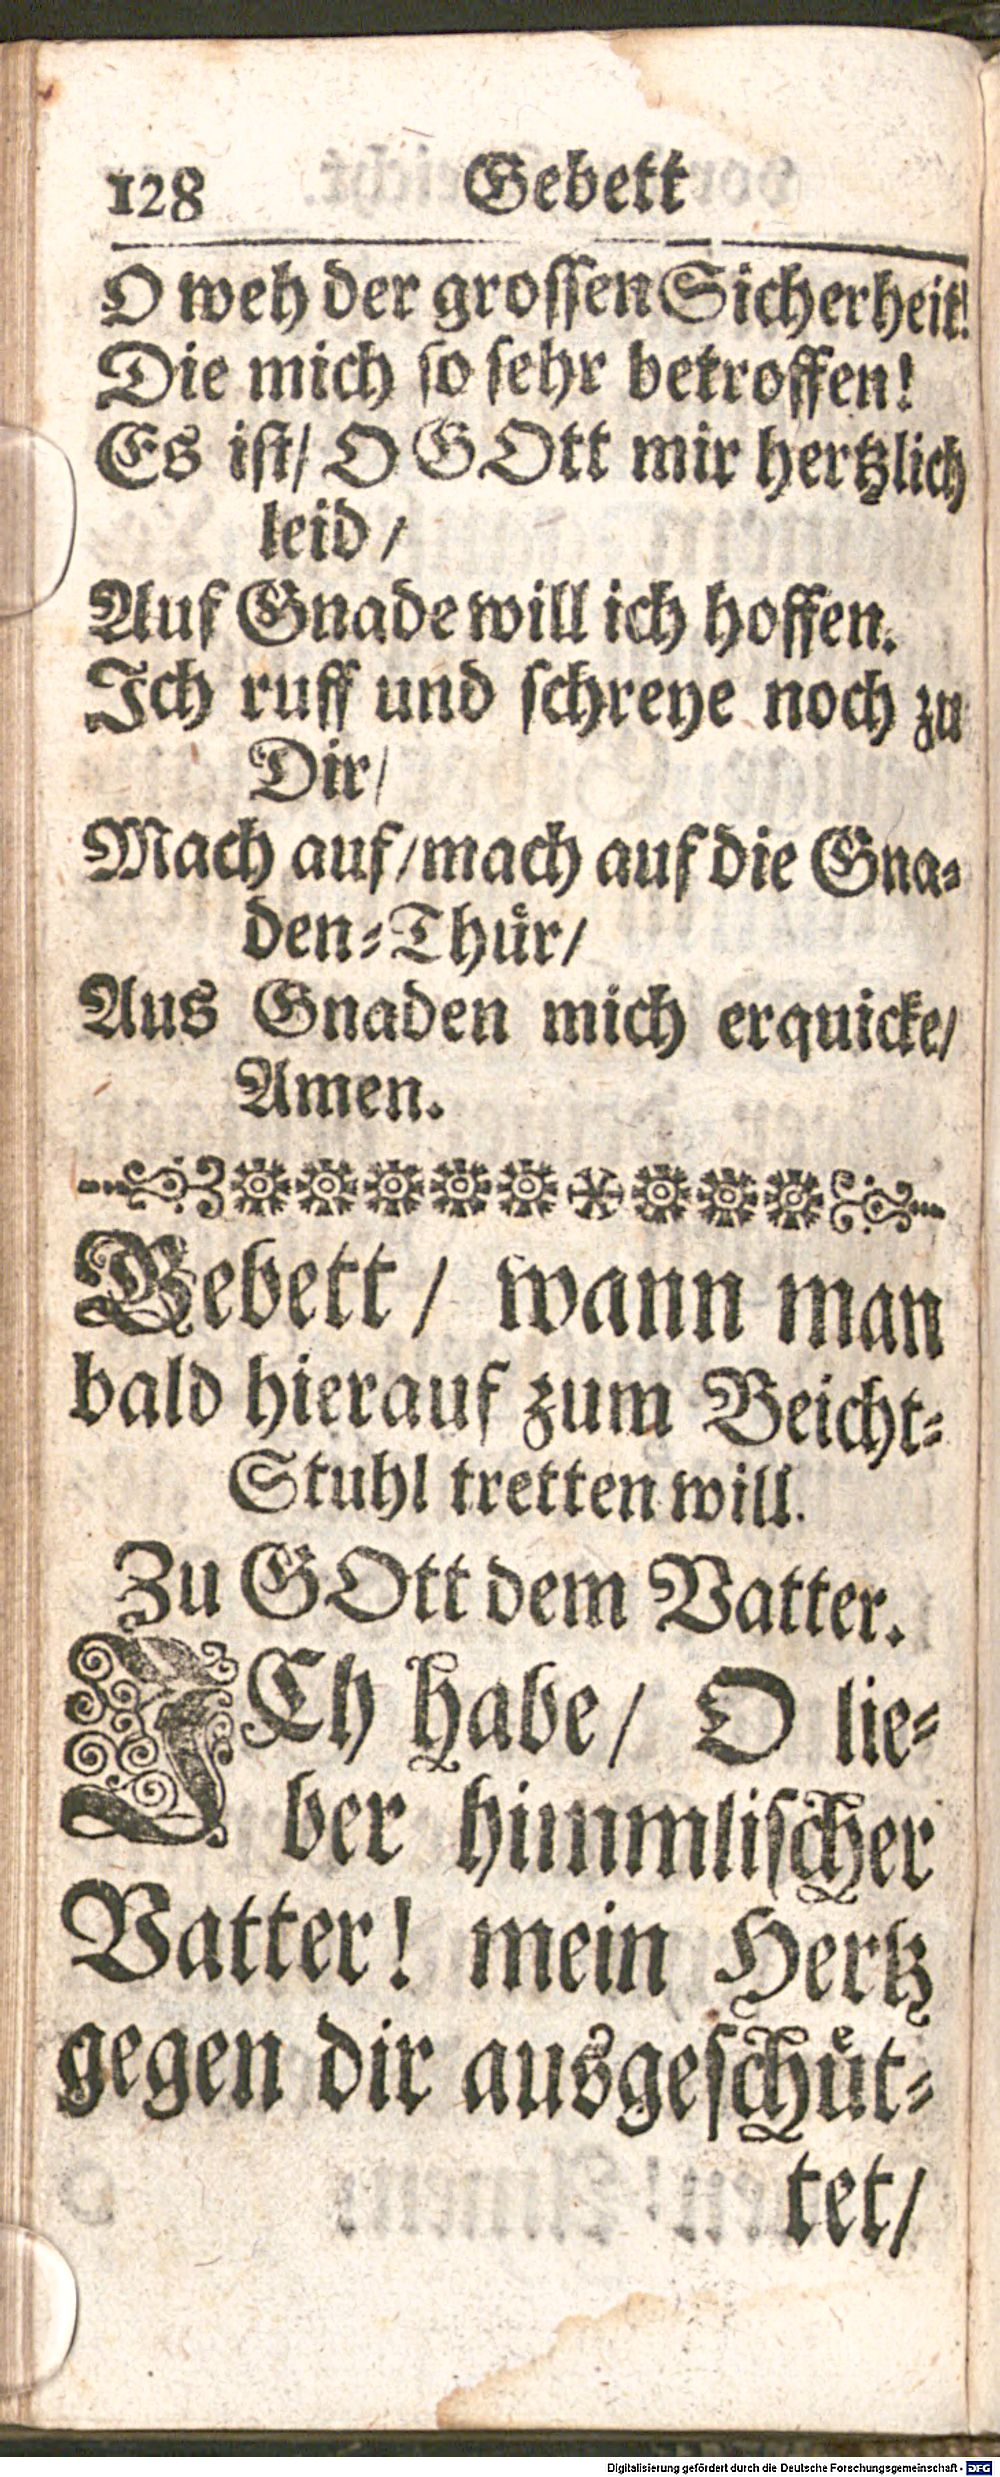 128 Gebett
O weh der grossen Sicherheit!
Die mich so sehr betroffen!
Es ist/ O GOtt mir hertzlich
leid /
Auf Gnade will ich hoffen.
Ich ruff und schreye noch zu
Dir/
Mach auf/mach auf die Gna-
den-Thür/
Aus Gnaden mich erquicke/
Amen.
Gebett / wann man
bald hierauf zum Beicht-
Stuhl tretten will.
Zu GOtt dem Vatter.
ICh habe / O lie-
ber himmlischer
Vatter! mein Hertz
gegen dir ausgeschüt-
tet/
Digitalisierung gefördert durch die Deutsche Forschungsgemeinschaft - DFG